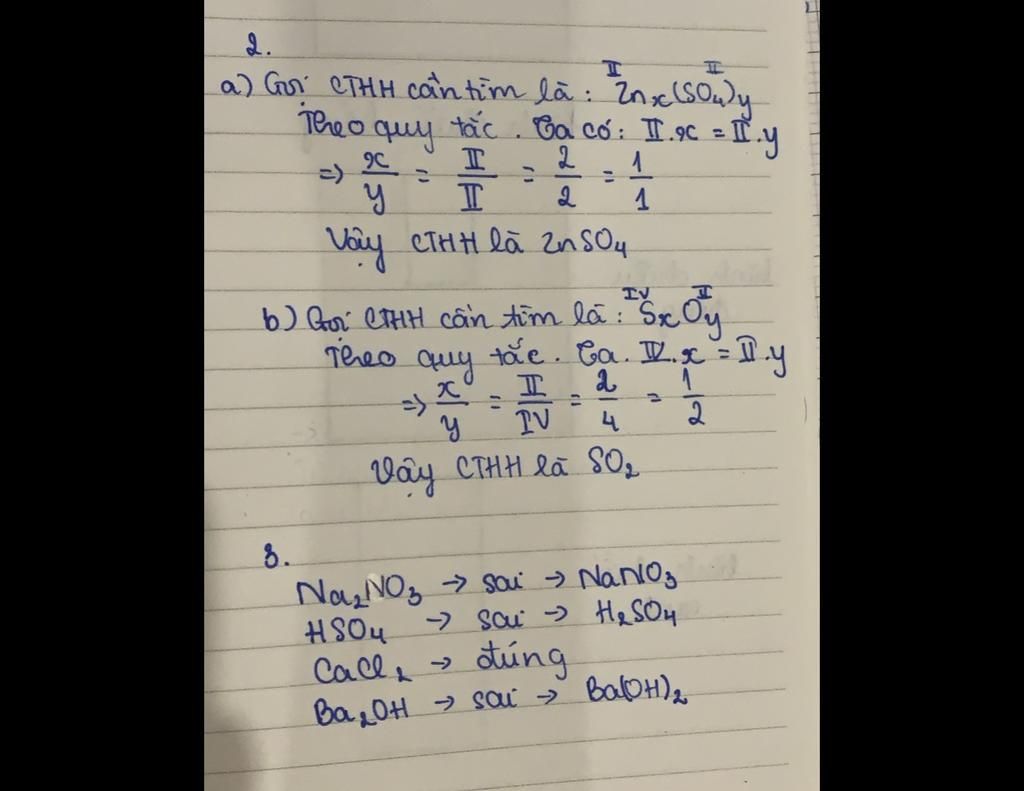 2.
a) Gọi CTHH cần tìm là: Znx(SO4)y
II II
Theo quy tắc. Ta có: II.x = II.y
=> x/y = II/II = 2/2 = 1/1
Vậy CTHH là ZnSO4
b) Gọi CTHH cần tìm là: SxOy
IV II
Theo quy tắc. Ta. IV.x = II.y
=> x/y = II/IV = 2/4 = 1/2
Vậy CTHH là SO2
3.
Na2NO3 → sai → NaNO3
HSO4 → sai → H2SO4
CaCl2 → đúng
Ba2OH → sai → Ba(OH)2